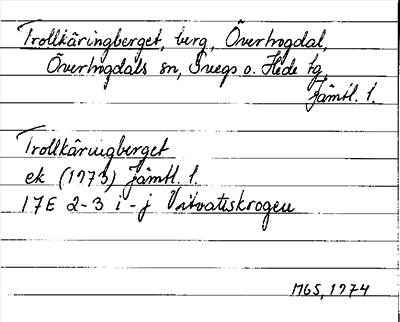 Trollkäringberget, berg, Överhogdal,
Överhogdals sn, Svegs o. Hede tg,
Jämtl. l.
Trollkäringberget
ek (1973) Jämtl. l.
17E 2-3 i-j Vitvattskrogen
MGS, 1974